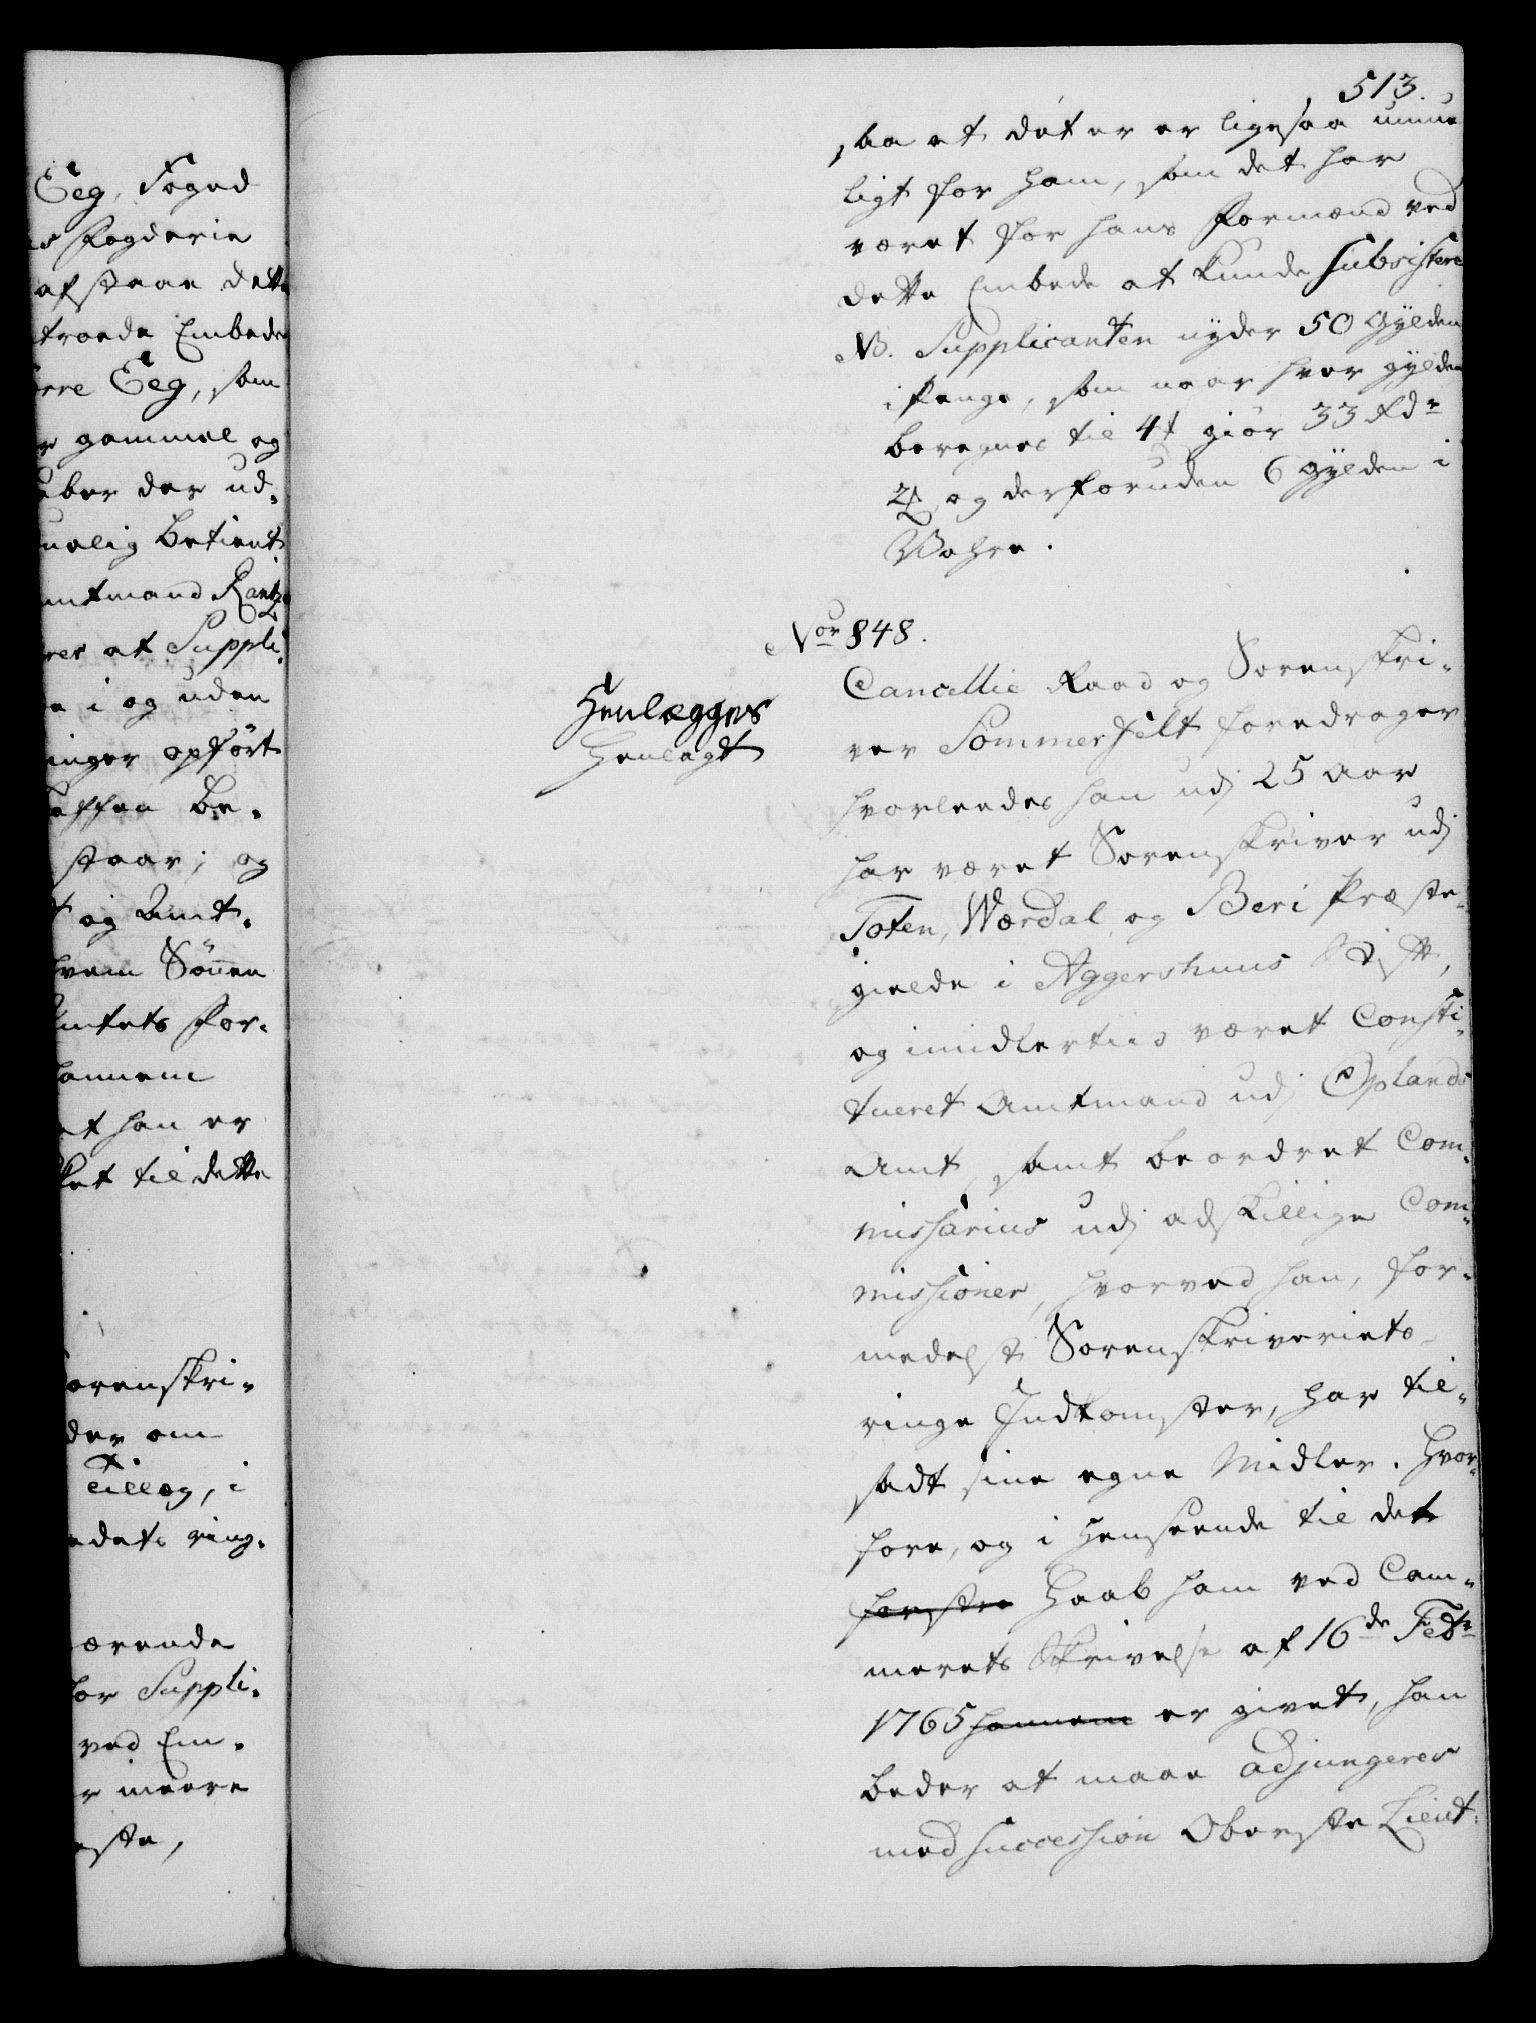 Eeg, Foged
Fogderie
afstaae dette
troede Embede
Eeg, som
gammel og
der ud-
Betient
Amtmand Rantz
at Suppli-
i og uden
opført
Be-
staar; og
og Amt-
hvem Sönnen
Amtets For-
hannem
at han er
til dette
Sorenskri-
der om
Tillæg, i
ring-
værende
for Suppli-
ved Em-
meere
513.
saa at det er er ligesaa umue
ligt for ham, som det har
været for hans Formænd ved
dette Embede at kunde subsistere
NB. Supplicanten nyder 50 Gylden
i Penge, som naar hver gylden
beregnes til 4 giör 33 Rdr
2 og derforuden 6 Gylden i
Vahre.
Nor 848.
Henlægges
Henlagt
Cancellie Raad og Sorenskri-
ver Sommerfelt foredrager
hvorledes han udj 25 Aar
har været Sorenskriver udj
Toten, Wardal og Beri Præste-
gielde i Aggershuus Stift,
og imidlertiid været Consti-
tueret Amtmand udj Oplands
Amt, samt beordret Com-
missarius udj adskillige Com-
missioner, hvorved han, for-
medelst Sorenskriveriets
ringe Indkomster, har til-
sadt sine egne Midler. Hvor-
fore, og i Henseende til det
første Haab ham ved Cam-
merets Skrivelse af 16de Febr
1765 hannem er givet, han
beder at maae adjungeres
med succession Oberste Lieut-